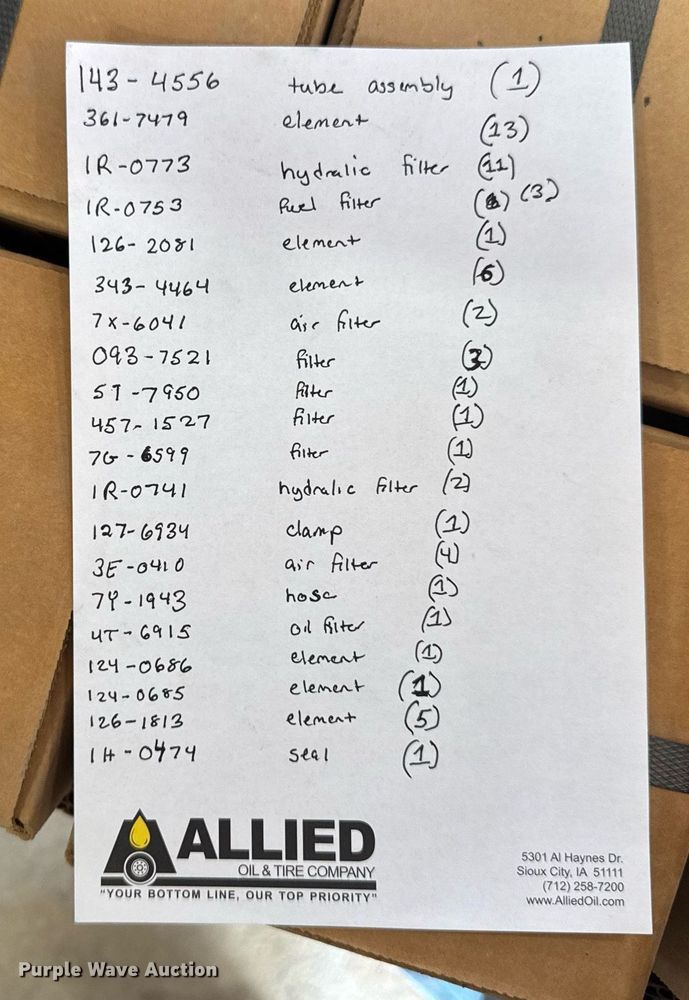 143-4556 tube assembly (1)
361-7479 element (13)
1R-0773 hydralic filter (11)
1R-0753 fuel filter (3)
126-2081 element (1)
343-4464 element (6)
7X-6041 air filter (2)
093-7521 filter (3)
5T-7950 filter (1)
457-1527 filter (1)
7G-6599 filter (1)
1R-0741 hydralic filter (2)
127-6934 clamp (1)
3E-0410 air filter (4)
7Y-1943 hose (1)
4T-6915 oil filter (1)
124-0686 element (1)
124-0685 element (1)
126-1813 element (5)
1H-0474 seal (1)
ALLIED
OIL & TIRE COMPANY
"YOUR BOTTOM LINE, OUR TOP PRIORITY"
5301 Al Haynes Dr.
Sioux City, IA 51111
(712) 258-7200
www.AlliedOil.com
Purple Wave Auction